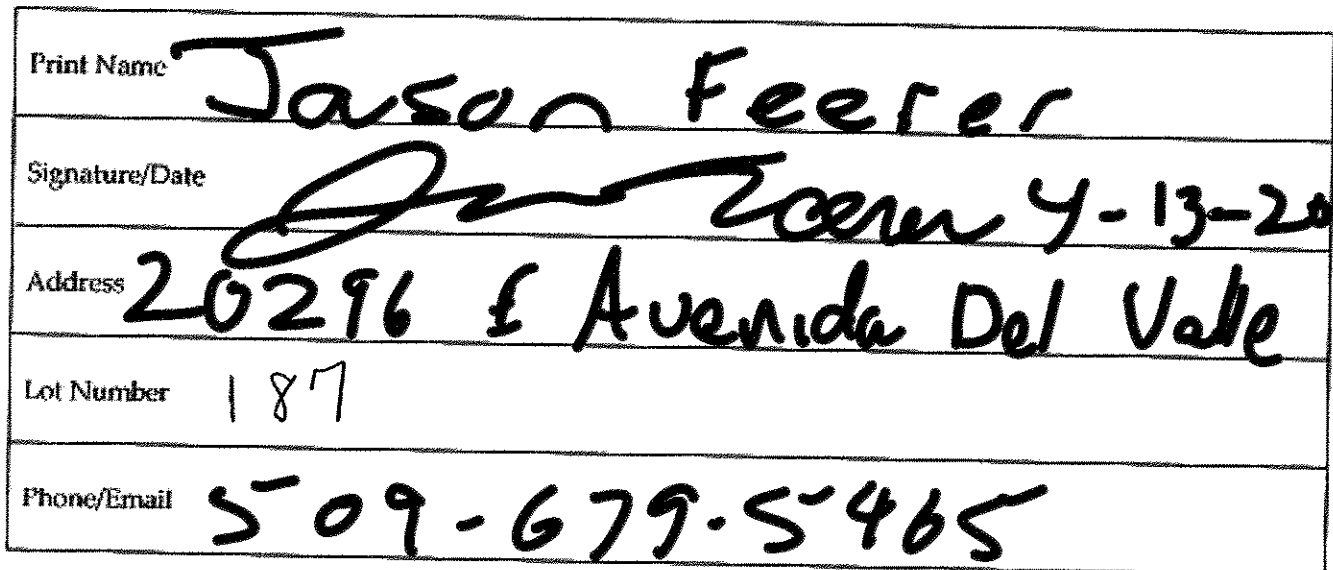 Print Name Jason Feerer
Signature/Date Jason Feerer 4-13-20
Address 20296 E Avenida Del Valle
Lot Number 187
Phone/Email 509-679-5465